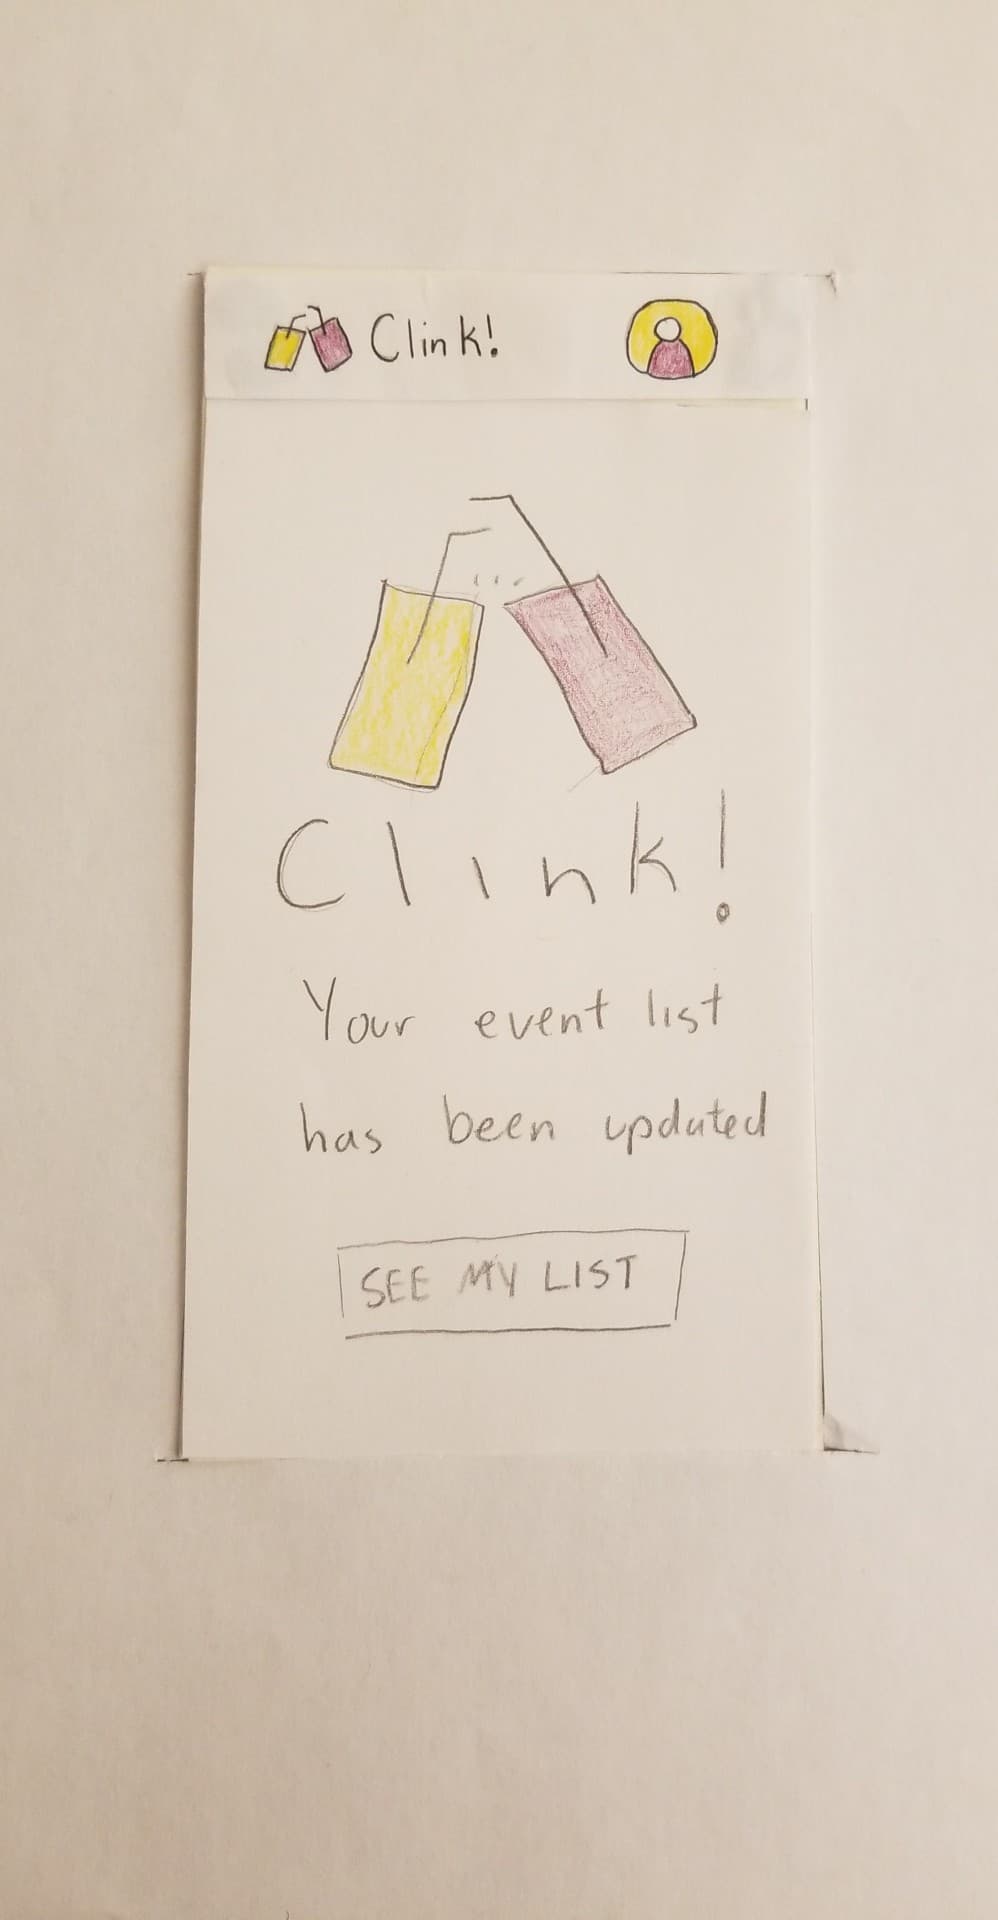 Clink!
Clink!
Your event list
has been updated
SEE MY LIST